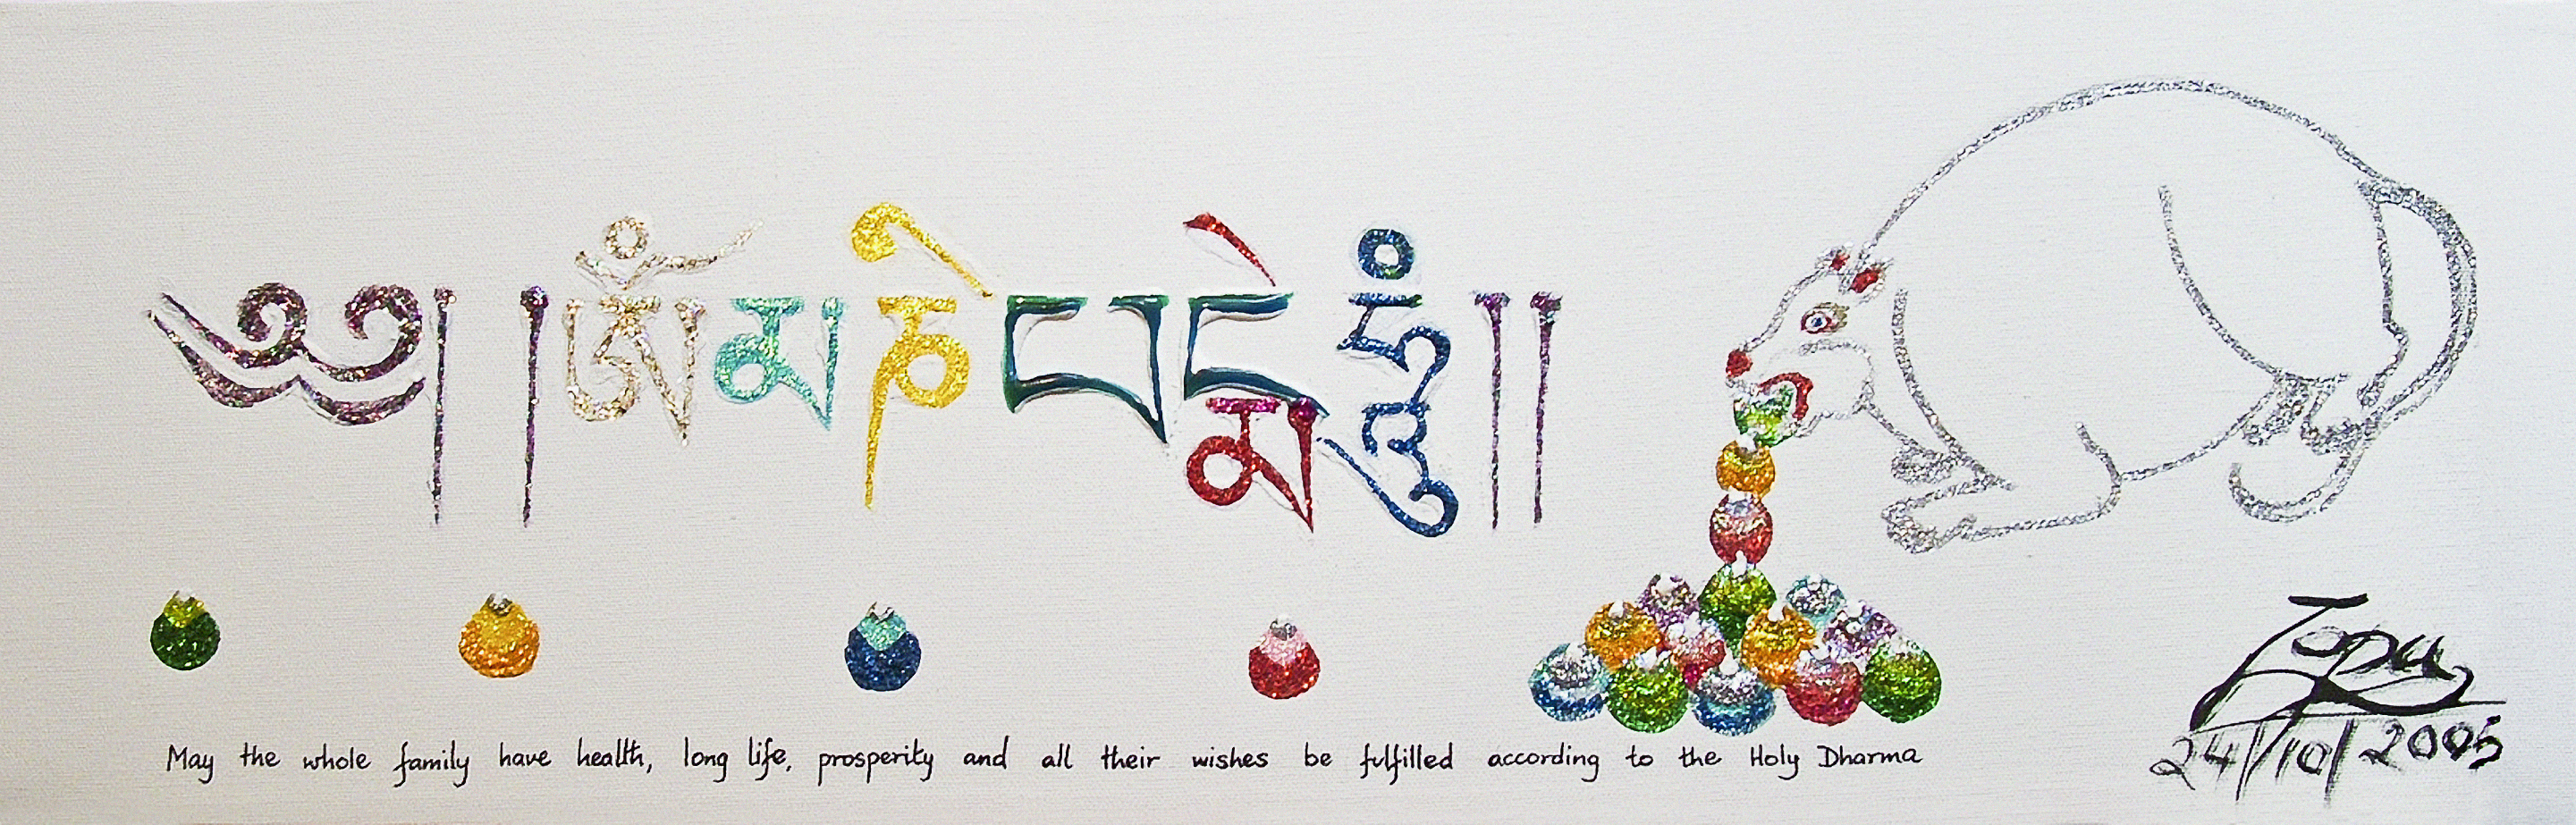 ༄༅། །ཨོཾ་མ་ཎི་པདྨེ་ཧཱུྃ།།
May the whole family have health, long life, prosperity and all their wishes be fulfilled according to the Holy Dharma
Zopa
24/10/2005